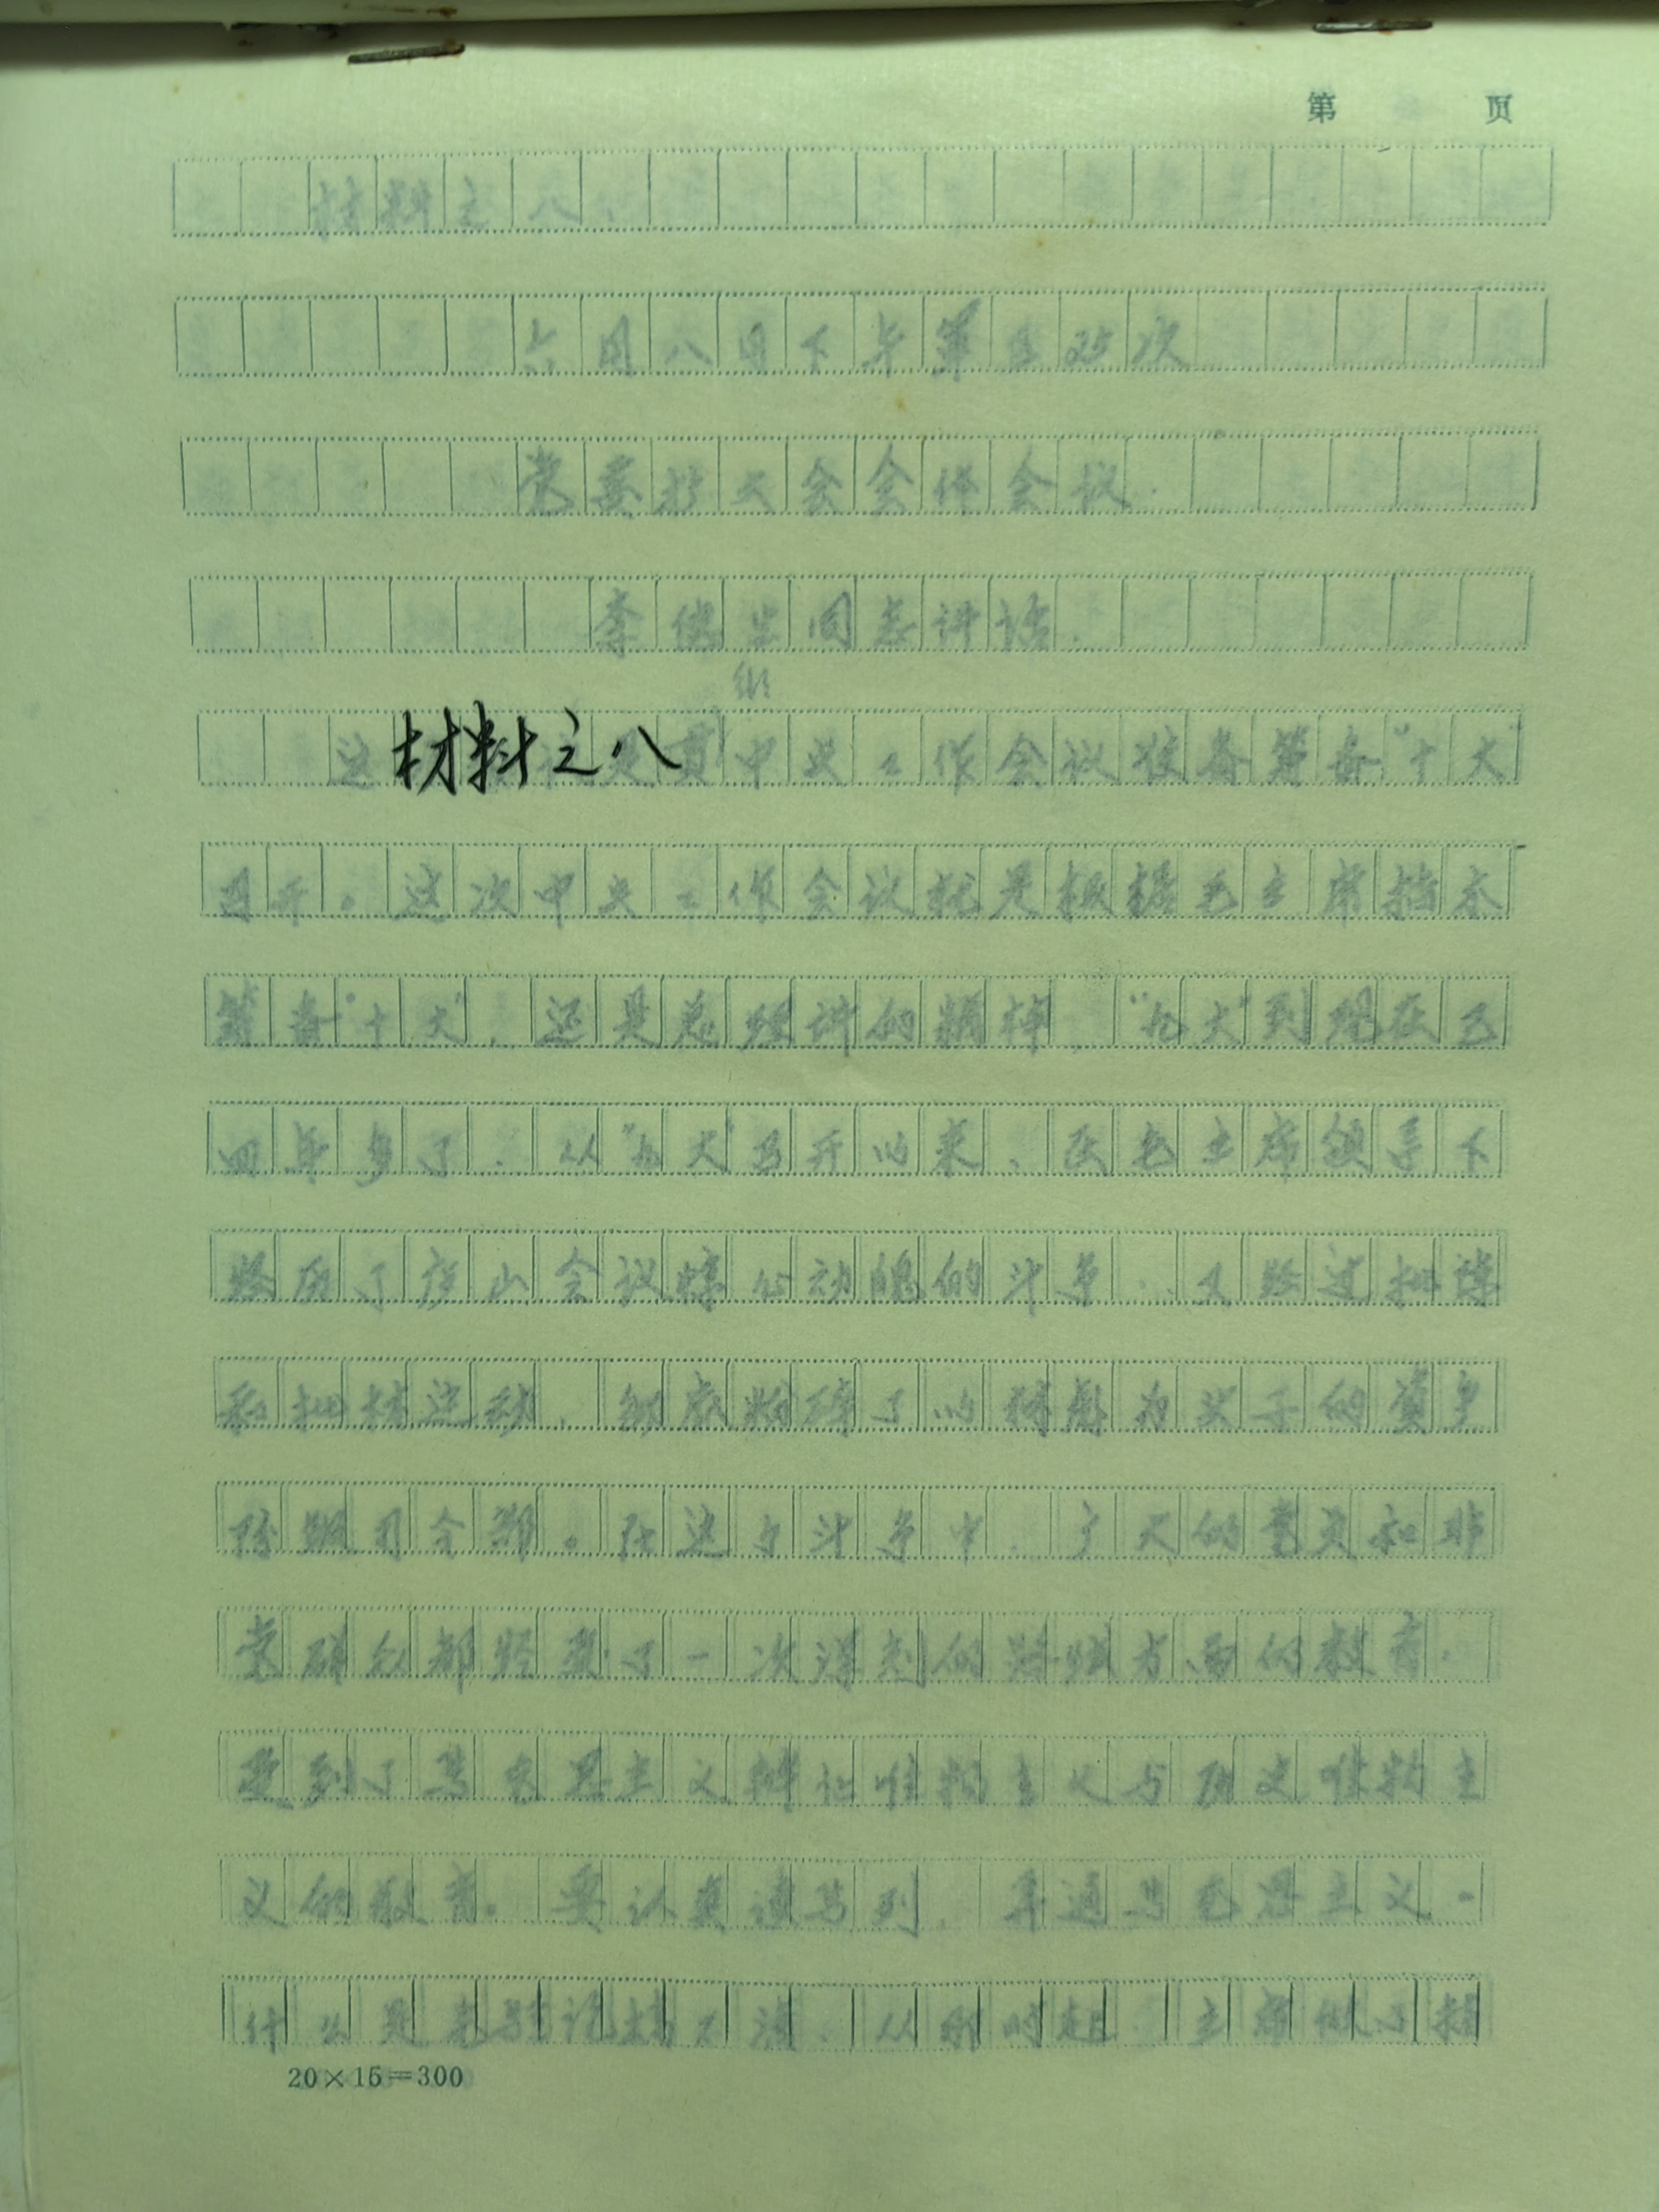 第 页
材料之八
六月八日下午第 次
党委扩大会会件会议
李 同志讲话.
材料之八 中央工作会议 准备筹备"十大"
召开。这次中央工作会议就是根据毛主席 
筹备"十大",还是总理讲的精神,"九大"到现在已
四年多了.从"九大"召开以来、在毛主席领导下
经历了庐山会议惊心动魄的斗争、又经过批陈
和批林运动、彻底粉碎了以林彪为头子的资 
阶级司令部。在这 斗争中、广大的党员和非
党群众都经受了一次深刻的路线方面的教育.
受到了马克思主义辩证唯物主义与历史唯物主
义的教育。要认真读马列, 通马克思主义.
什么是 搞不清.从那时起 主席做了
20×15=300